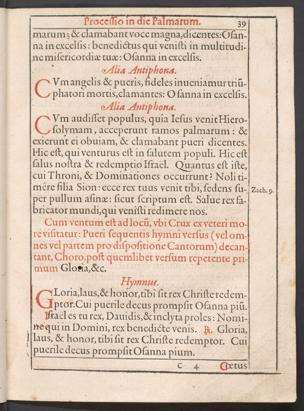 Processio in die Palmarum. 39
matum; & clamabant voce magna, dicentes: Osan-
na in excelsis: benedictus qui venisti in multitudi-
ne misericordiæ tuæ: Osanna in excelsis.
Alia Antiphona.
CVm angelis & pueris, fideles inueniamur triũ-
phatori mortis, clamantes: O sanna in excelsis.
Alia Antiphona.
CVm audisset populus, quia Iesus venit Hiero-
solymam, acceperunt ramos palmarum: &
exierunt ei obuiam, & clamabant pueri dicentes.
Hic est, qui venturus est in salutem populi. Hic est
salus nostra & redemptio Israel. Quantus est iste,
cui Throni, & Dominationes occurrunt? Noli ti-
mêre filia Sion: ecce rex tuus venit tibi, sedens su-
Zach. 9.
per pullum asinæ: sicut scriptum est. Salue rex fa-
bricator mundi, qui venisti redimere nos.
Cum ventum est ad locũ, vbi Crux ex veteri mo-
re visitatur: Pueri sequentis hymni versus (vel om-
nes vel partem pro dispositione Cantorum) decan-
tant, Choro, post quemlibet versum repetente pri-
mum Gloria, &c.
Hymnus.
GLoria, laus, & honor, tibi sit rex Christe redem-
ptor. Cui puerile decus prompsit Osanna piũ.
Israel es tu rex, Dauidis, & inclyta proles: Nomi-
ne qui in Domini, rex benedicte venis. ℟. Gloria,
laus, & honor, tibi sit rex Christe redemptor. Cui
puerile decus prompsit Osanna pium.
C 4 Cœtus